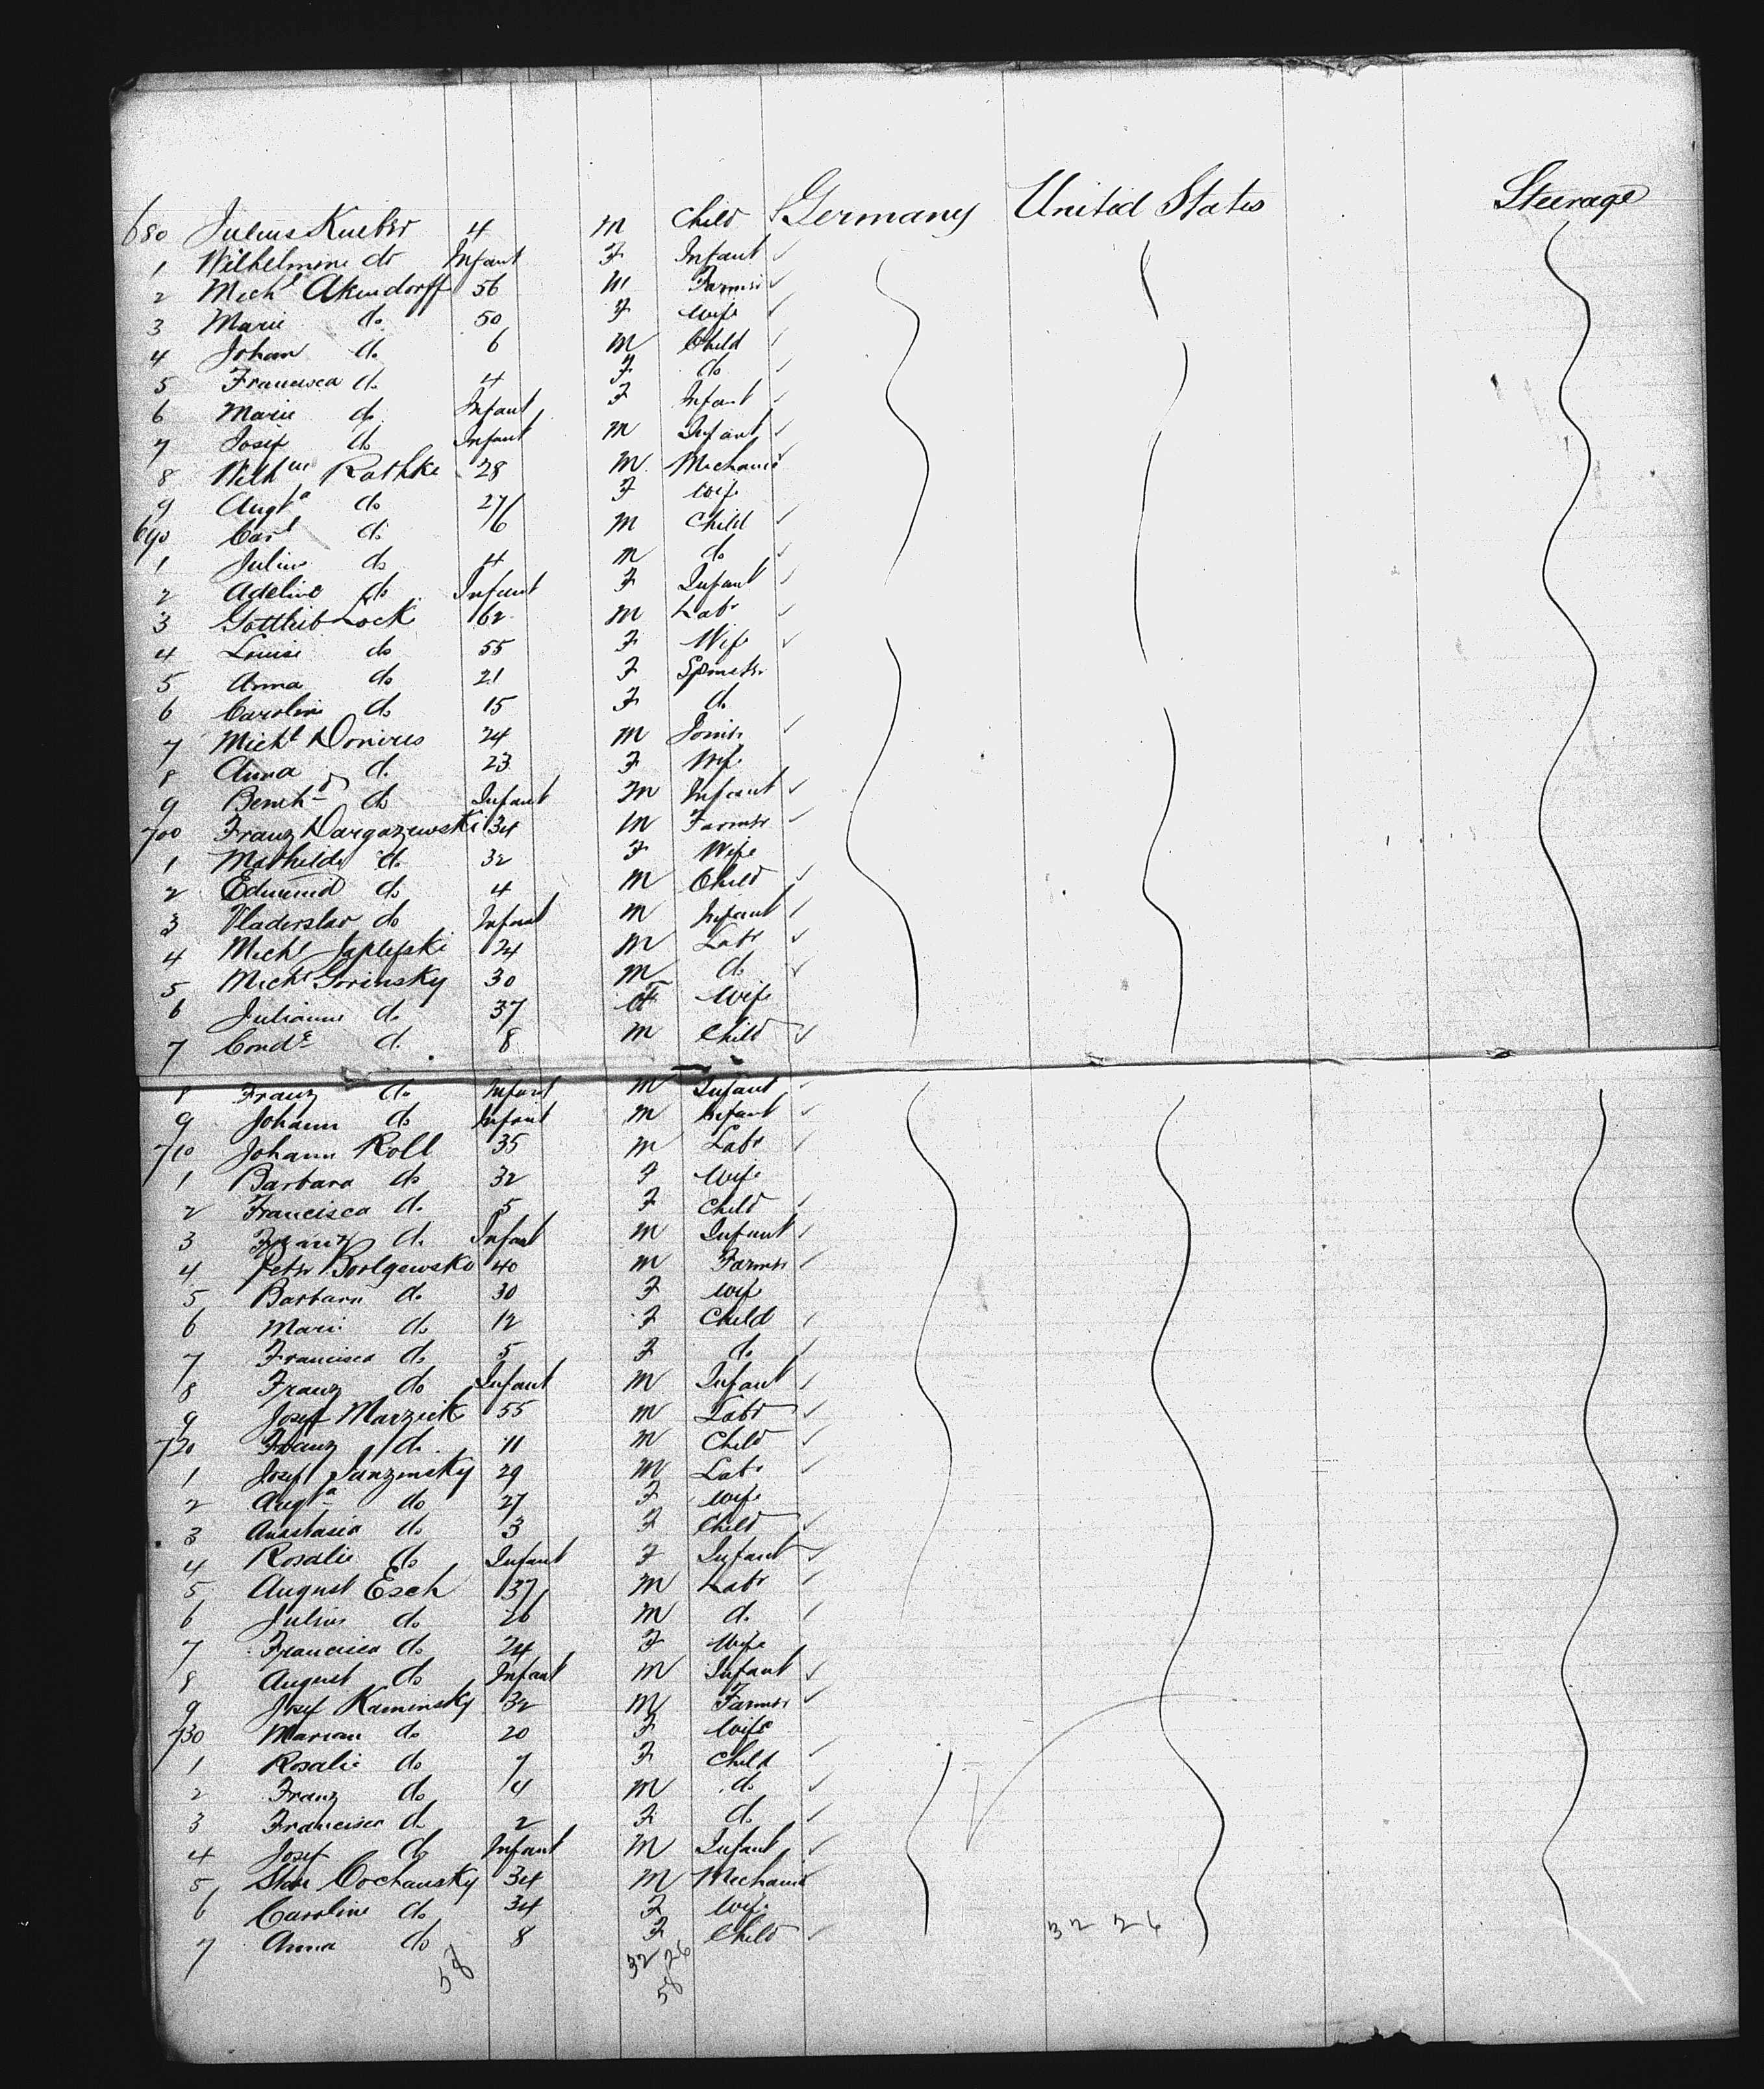 680 Julius Kueber 4 M Child Germany United States Steerage
1 Wilhelmine do Infant F Infant
2 Mich<sup>l</sup> Akendorff 56 M Farmer
3 Marie do 50 F Wife
4 Johan do 6 M Child
5 Francisca do 4 F do
6 Marie do Infant F Infant
7 Josef do Infant M Infant
8 Wilh<sup>m</sup> Rathke 28 M Mechanic
9 Aug<sup>ta</sup> do 27 F Wife
690 Carl do 6 M Child
1 Julius do 4 M do
2 Adeline do Infant F Infant
3 Gottlieb Lock 62 M Lab<sup>r</sup>
4 Louise do 55 F Wife
5 Anna do 21 F Spinster
6 Caroline do 15 F do
7 Mich<sup>l</sup> 24 M Joiner
8 Anna do 23 F Wife
9 Bernh<sup>d</sup> do Infant M Infant
700 Franz Dargazewski 34 M Farmer
1 Mathilde do 32 F Wife
2 Edmund do 4 M Child
3 Vladerslav do Infant M Infant
4 Mich<sup>l</sup> 24 M Lab<sup>r</sup>
5 Mich<sup>l</sup> Gorinsky 30 M do
6 Julianne do 37 F Wife
7 Cond<sup>e</sup> do 8 M Child
8 Franz do Infant M Infant
9 Johann do Infant M Infant
710 Johann Roll 35 M Lab<sup>r</sup>
1 Barbara do 32 F Wife
2 Francisca do 5 F Child
3 Franz do Infant M Infant
4 Peter Borlgewske 40 M Farmer
5 Barbara do 30 F Wife
6 Marie do 12 F Child
7 Francisca do 5 F do
8 Franz do Infant M Infant
9 Josef Marzeik 55 M Labr
720 Franz do 11 M Child
1 Josef Janzinsky 29 M Lab<sup>r</sup>
2 Aug<sup>ta</sup> do 27 F Wife
3 Anastasia do 3 F Child
4 Rosalie do Infant F Infant
5 August Esch 37 M Labr
6 Julius do 26 M do
7 Francisca do 24 F Wife
8 August do Infant M Infant
9 Josef Kaminsky 32 M Farmer
730 Marian do 20 F Wife
1 Rosalie do 7 F Child
2 Franz do 4 M do
3 Francisca do 2 F do
4 Josef do Infant M Infant
5 Cochansky 34 M Mechanic
6 Caroline do 34 F Wife
7 Anna do 8 F Child
32 26
58
32 26
58